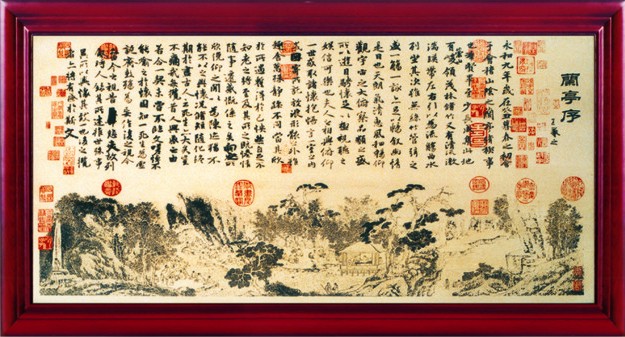 蘭亭序
王羲之
永和九年歲在癸丑暮春之初會
于會稽山陰之蘭亭脩禊事
也群賢畢至少長咸集此地
有崇山峻領茂林脩竹又有清流激
湍暎帶左右引以為流觴曲水
列坐其次雖無絲竹管弦之
盛一觴一詠亦足以暢敘幽情
是日也天朗氣清惠風和暢仰
觀宇宙之大俯察品類之盛
所以遊目騁懷足以極視聽之
娛信可樂也夫人之相與俯仰
一世或取諸懷抱悟言一室之內
或因寄所託放浪形骸之外雖
趣舍萬殊靜躁不同當其欣
於所遇暫得於己怏然自足不
知老之將至及其所之既惓情
隨事遷感慨係之矣向之所
欣俛仰之間以為陳迹猶不
能不以之興懷況脩短隨化終
期於盡古人云死生亦大矣豈
不痛哉每攬昔人興感之由
若合一契未嘗不臨文嗟悼不
能喻之於懷固知一死生為虛
誕齊彭殤為妄作後之視今
亦由今之視昔悲夫故列
敘時人錄其所述雖世殊事
異所以興懷其致一也後之攬
者亦將有感於斯文